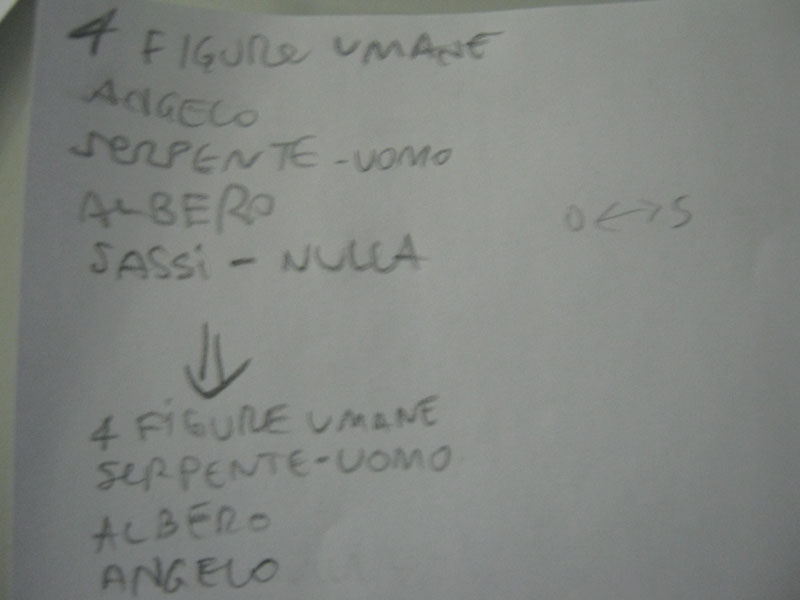 4 FIGURE UMANE
ANGELO
SERPENTE-UOMO
ALBERO
O ↔ S
SASSI - NULLA
⇓
4 FIGURE UMANE
SERPENTE-UOMO
ALBERO
ANGELO